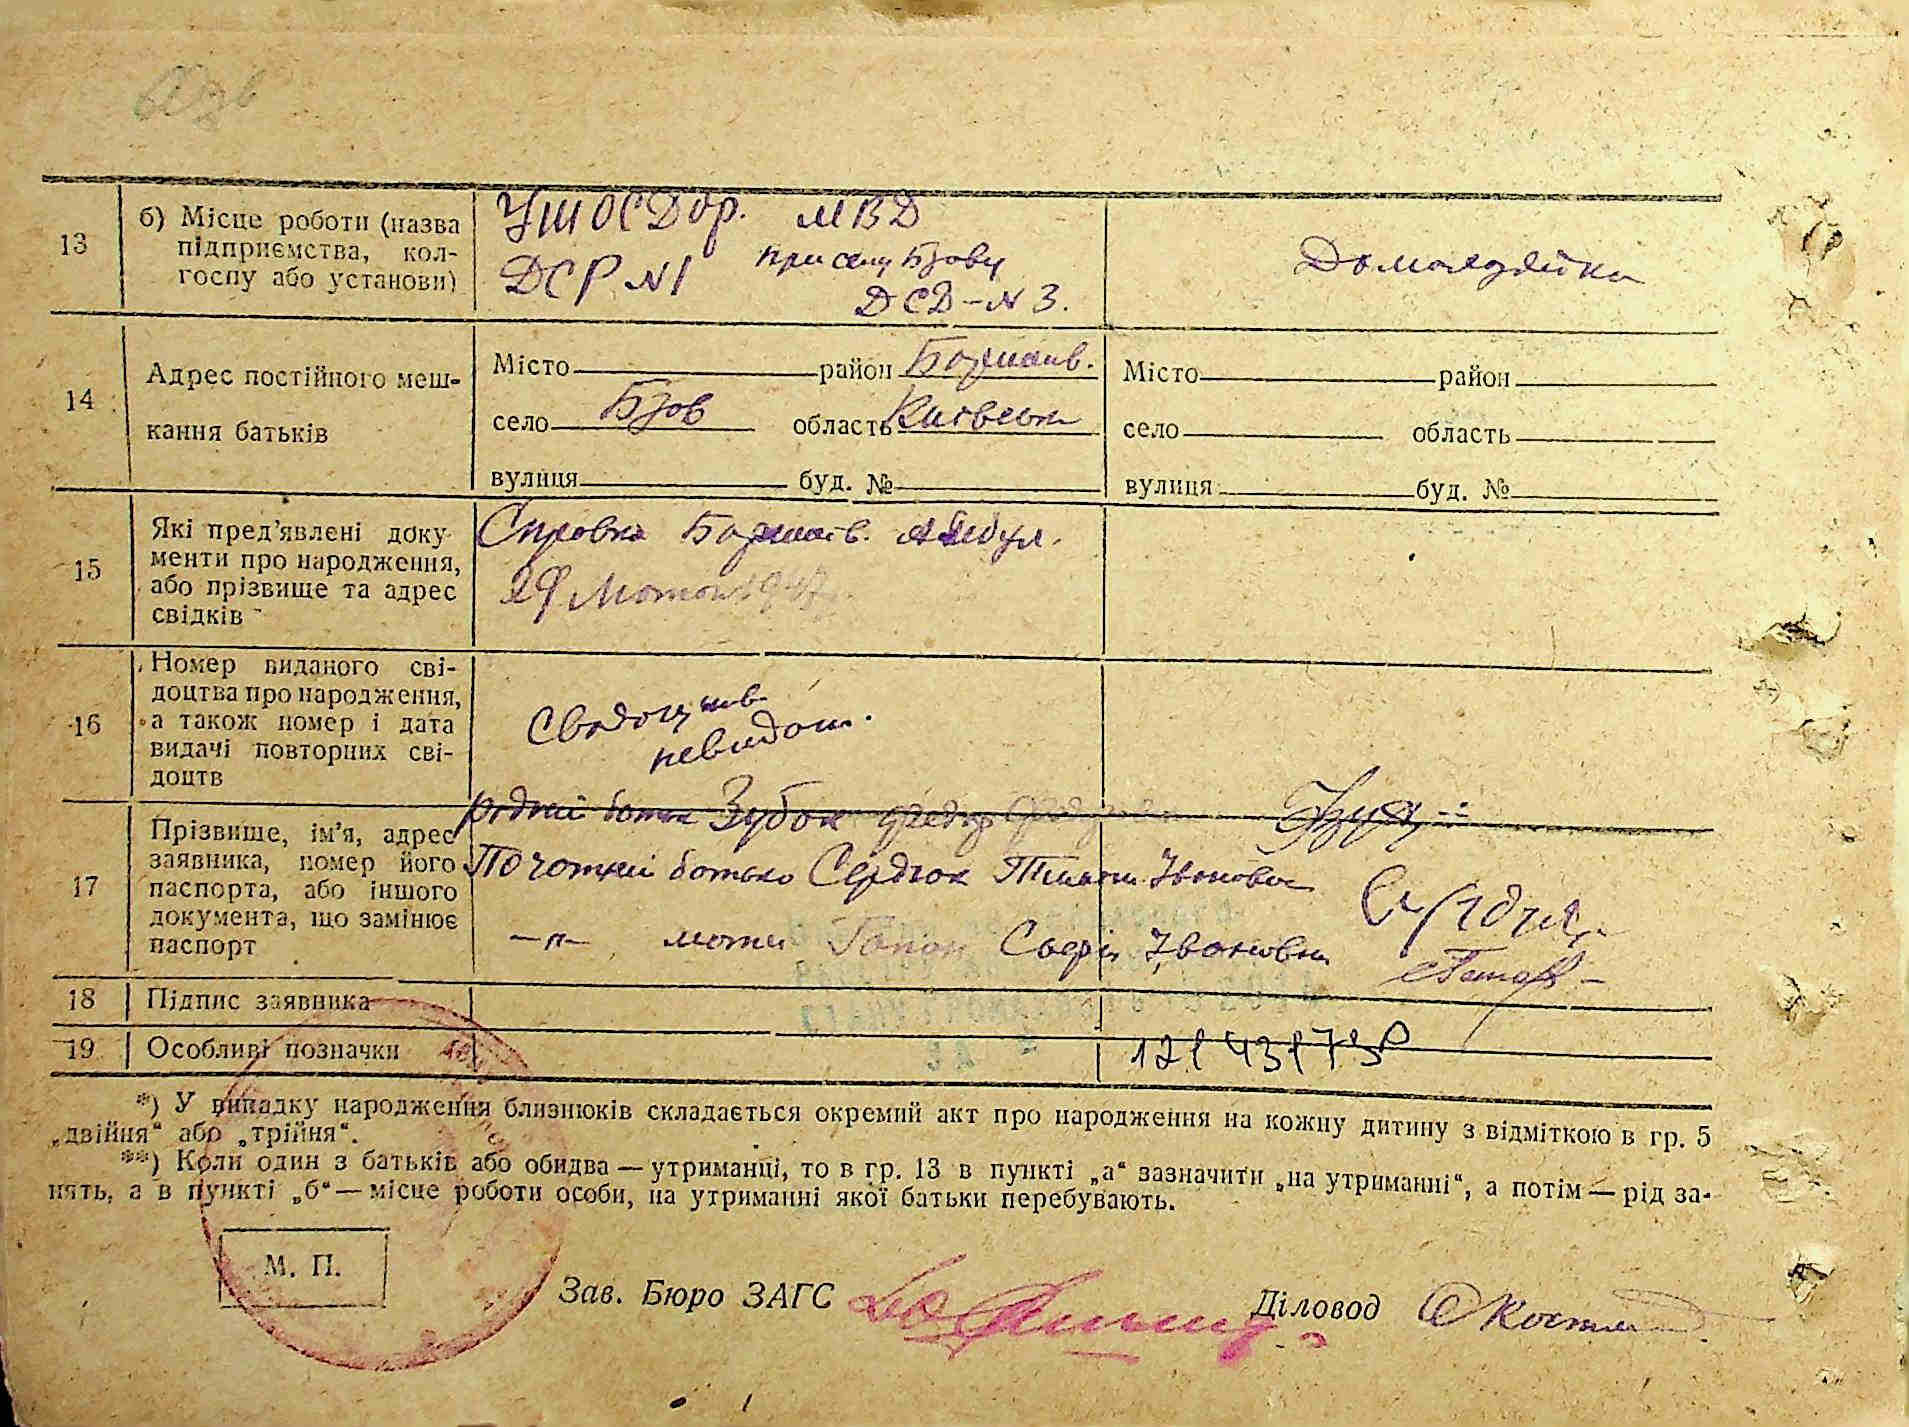 13
б) Місце роботи (назва
підприємства, кол-
госпу або установи)
УШОСДор. МВД
ДСР №1 при селу Бзову
ДСД - №3.
Домогдзяйка
14
Адрес постійного меш-
кання батьків
Місто район Баришів.
село Бзов область Київська
вулиця буд. №
Місто район
село область
вулиця буд. №
15
Які пред'явлені доку-
менти про народження,
або прізвище та адрес
свідків
Справка Баришів. Амбул.
1947
16
Номер виданого сві-
доцтва про народження,
а також номер і дата
видачі повторних сві-
доцтв
невидан.
17
Прізвище, ім'я, адрес
заявника, номер його
паспорта, або іншого
документа, що замінює
паспорт
рідний батько Зубок
Почотний батько Сердюк Івановас
-п- мати Гапон Івановна
18
Підпис заявника
19
Особливі позначки
*) У випадку народження близнюків складається окремий акт про народження на кожну дитину з відміткою в гр. 5
„двійня“ або „трійня“.
**) Коли один з батьків або обидва — утриманці, то в гр. 13 в пункті „а“ зазначити „на утриманні“, а потім — рід за-
нять, а в пункті „б“ — місце роботи особи, на утриманні якої батьки перебувають.
М. П.
Зав. Бюро ЗАГС
Діловод